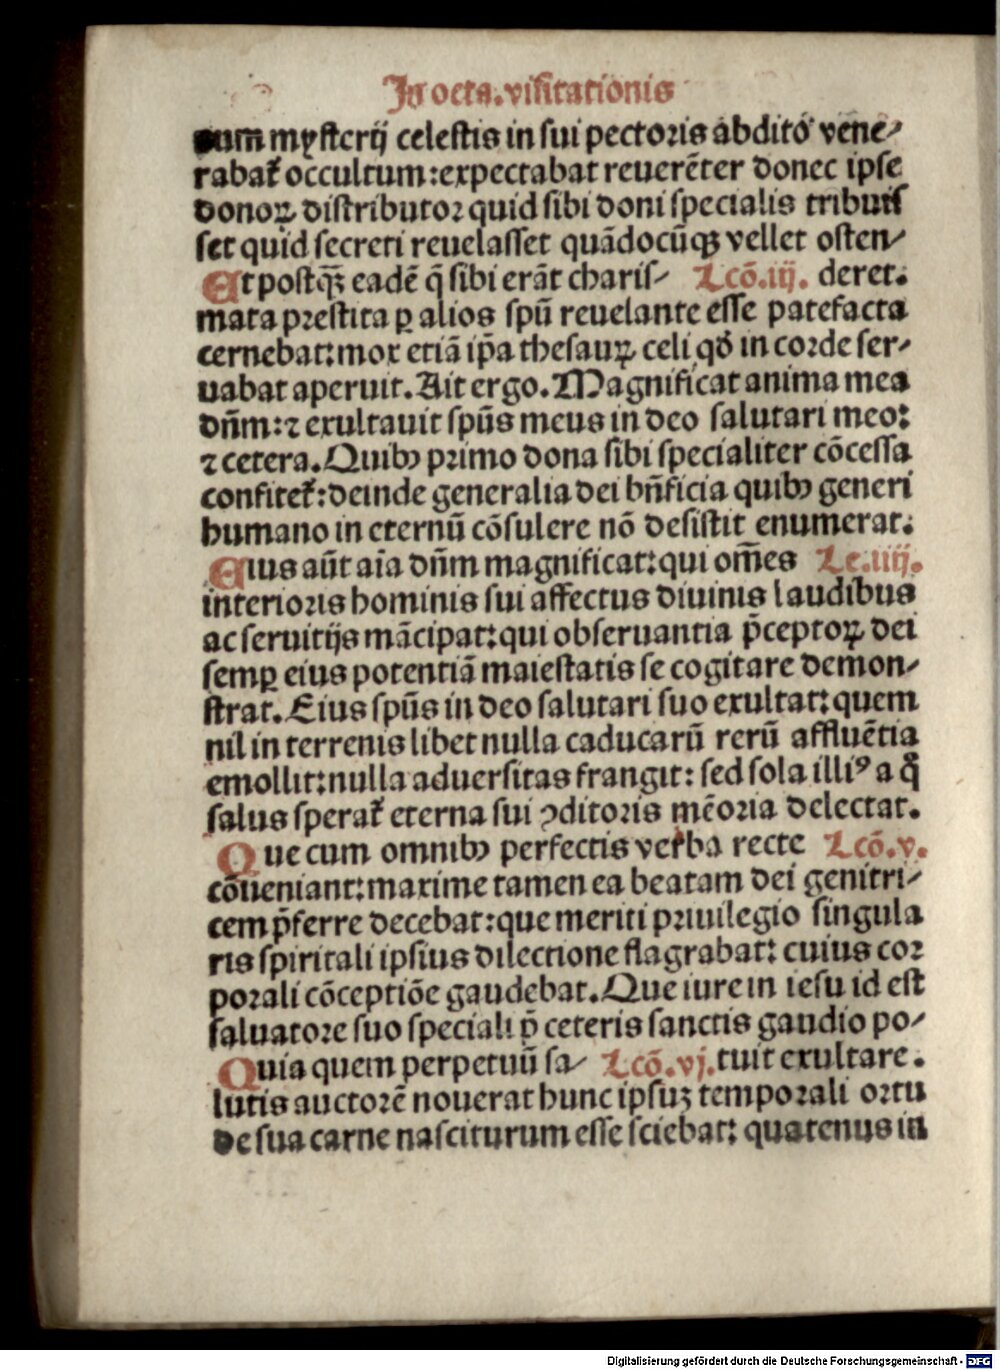 In octa. visitationis
mysterij celestis in sui pectoris abdito vene-
rabat᷑ occultum: expectabat reuerēter donec ipse
donoꝝ distributor quid sibi doni specialis tribuis
set quid secreti reuelasset quādocūqꝫ vellet osten-
Et postqꝫ̄ eadē q̄ sibi erāt charis- Lcō.iij. deret.
mata prestita ꝑ alios spū reuelante esse patefacta
cernebat: mox etiā ip̄a thesauꝝ celi qđ in corde ser-
uabat aperuit. Ait ergo. Magnificat anima mea
dn̄m: ⁊ exultauit spūs meus in deo salutari meo:
⁊ cetera. Quibꝰ primo dona sibi specialiter cōcessa
confitet᷑: deinde generalia dei bn̄ficia quibꝰ generi
humano in eternū cōsulere nō desistit enumerat.
Eius aūt aīa dn̄m magnificat: qui om̄es Le.iiij.
interioris hominis sui affectus diuinis laudibus
ac seruitijs mācipat: qui obseruantia p̄ceptoꝝ dei
semꝑ eius potentiā maiestatis se cogitare demon-
strat. Eius spūs in deo salutari suo exultat: quem
nil in terrenis libet nulla caducarū rerū affluētia
emollit: nulla aduersitas frangit: sed sola illiꝰ a q̄
salus sperat᷑ eterna sui ꝯditoris mēoria delectat.
Que cum omnibꝰ perfectis verba recte Lcō.v.
cōueniant: maxime tamen ea beatam dei genitri-
cem p̄ferre decebat: que meriti priuilegio singula
ris spiritali ipsius dilectione flagrabat: cuius cor
porali cōceptiōe gaudebat. Que iure in iesu id est
saluatore suo speciali p̄ ceteris sanctis gaudio po-
Quia quem perpetuū sa- Lcō.vj. tuit exultare.
lutis auctorē nouerat hunc ipsuꝫ temporali ortu
de sua carne nasciturum esse sciebat: quatenus in
Digitalisierung gefördert durch die Deutsche Forschungsgemeinschaft - DFG